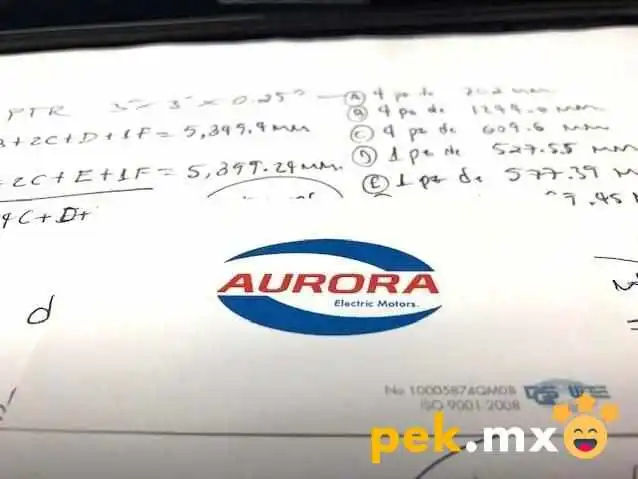 PTR 3" x 3" x 0.25"
+2C+D+1F= 5,399.9 mm
+2C+E+1F= 5,399.29 mm.
4C+D+
A 4 pz de 202 mm
4 pz de 1244. mm
C 4 pz de 609.6 mm
D 1 pz de 527.55 mm
E 1 pz de 577.39
9.45
d
AURORA
Electric Motors.
No 10005874QM08
ISO 9001:2008
pek.mx